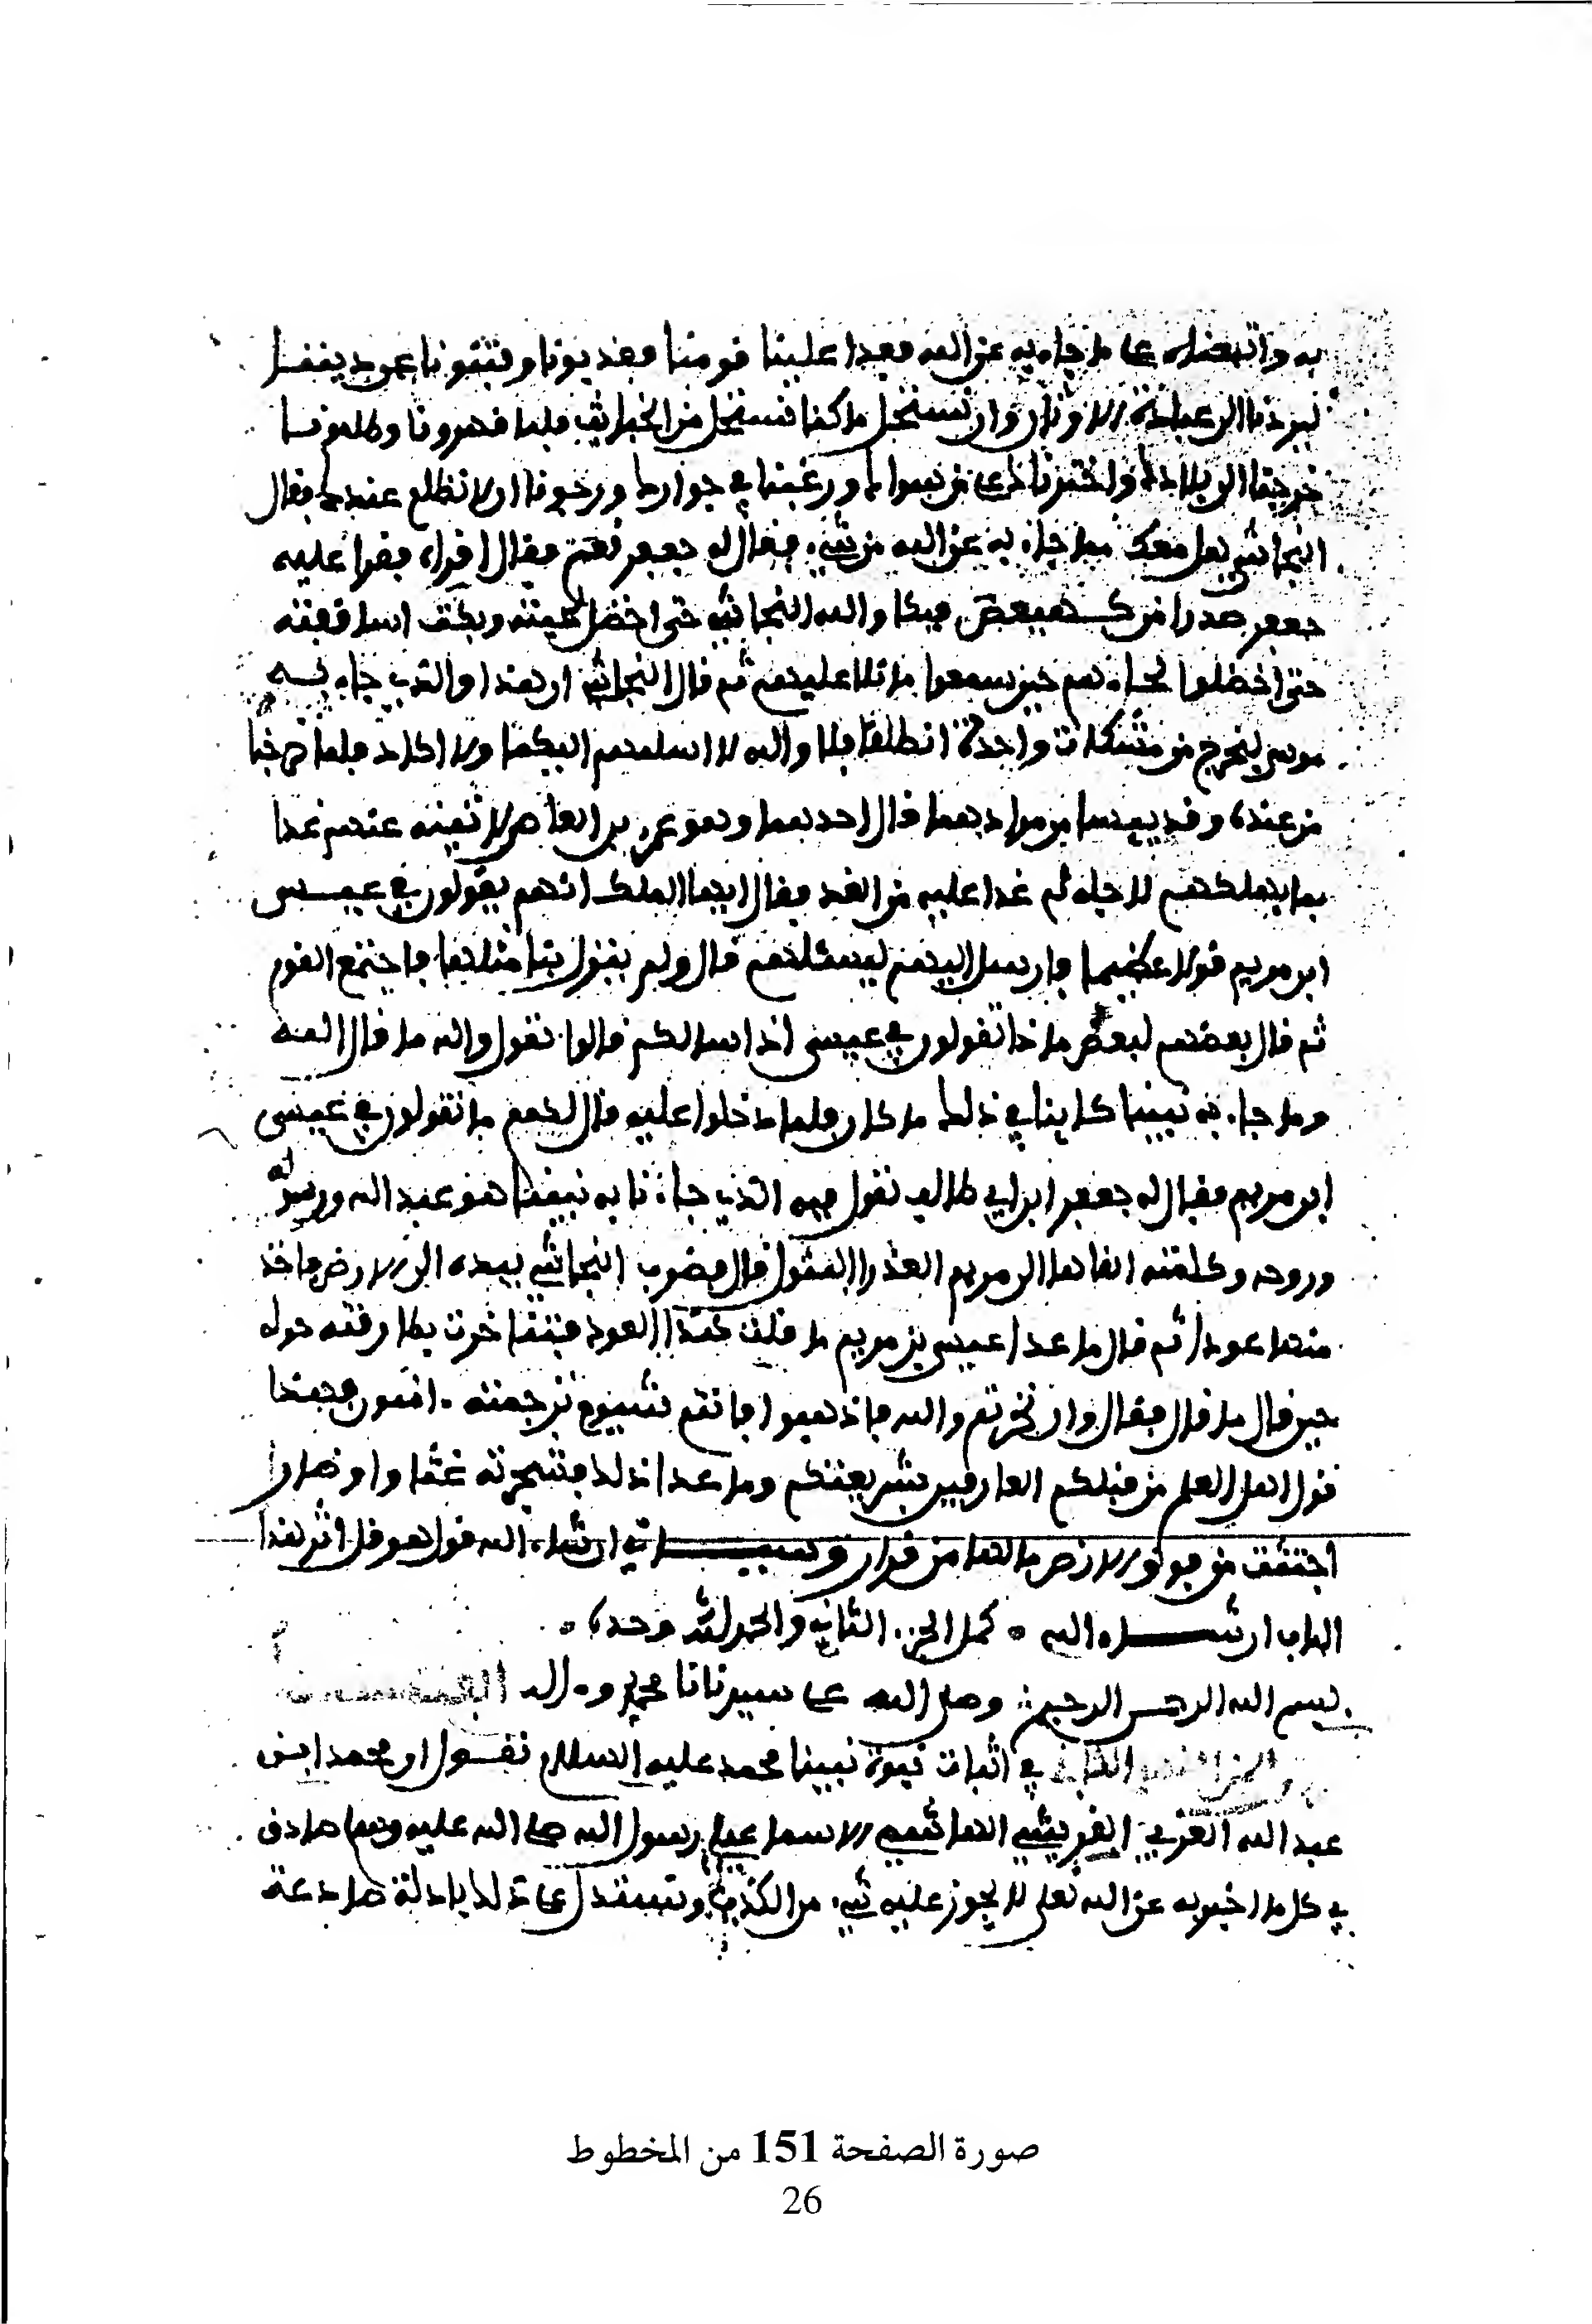 به واتبعناه على ما جاء به عن الله فعدا علينا قومنا فعذبونا وفتنونا عن ديننا
ليردنا الى عبادة الاوثان وان نستحل ما كنا نستحل من الخبائث فلما قهرونا وظلمونا
خرجنا الى بلادك واخترناك على من سواك ورغبنا في جوارك ورجونا ان لا نظلم عندك فقال
النجاشي هل معك مما جاء به عن الله من شيء فقال له جعفر نعم فقال اقراه فقرا عليه
جعفر صدرا من كهيعص فبكا والله النجاشي حتى اخضل لحيته وبكت اساقفته
حتى اخضلوا لحاءهم حين سمعوا ما تلا عليهم ثم قال النجاشي ان هذا والذي جاء به
موسى ليخرج من مشكات واحدة انطلقا فلا والله لا اسلمهم اليكما ولا اكاد فلما خرجنا
من عنده وقد يئسا من مرادهما قال احدهما وهو عمر بن العاص لاتينه عنهم غدا
بما يهلكهم لاجله ثم غدا عليه من الغد فقال ايها الملك انهم يقولون في عيسى
ابن مريم قولا عظيما فارسل اليهم ليسئلهم قال ولم ينزل بنا مثلها فاجتمع القوم
ثم قال بعضهم لبعض ماذا تقولون في عيسى اذا سالكم قالوا نقول والله ما قال الله
وما جاء به نبينا كاينا في ذلك ما كان فلما دخلوا عليه قال لهم ما تقولون في عيسى
ابن مريم فقال له جعفر ابن ابي طالب نقول فيه الذي جاءنا به نبينا هو عبد الله ورسوله
وروحه وكلمته القاها الى مريم العذرا البتول قال فضرب النجاشي بيده الى الارض فاخذ
منها عودا ثم قال ما عدا عيسى بن مريم ما قلت هذا العود فتناخرت بطارقته حوله
حين قال ما قال فقال وان نخرتم والله فاذهبوا فانتم شيوم بترجمته امنون فهذا
قول اهل العلم من قبلكم العارفين بشريعتكم وما عدا ذلك فشجرته غثا واوضارا
اجتثت من فوق الارض مالها من قرار وسياتي ان شاء الله قول هرقل اثر هذا
الباب ان شاء الله كمل الجزء الثاني والحمد لله وحده
بسم الله الرحمن الرحيم وصلى الله على سيدنا محمد وءاله
في اثبات نبوة نبينا محمد عليه السلام نقول ان محمد ابن
عبد الله العربي القريشي الهاشمي الاسماعيلي رسول الله صلى الله عليه وسلم صادق
في كل ما اخبر به عن الله تعلى لا يجوز عليه شيء من الكذب ونستدل على ذلك بادلة صادعة
صورة الصفحة 151 من المخطوط
26